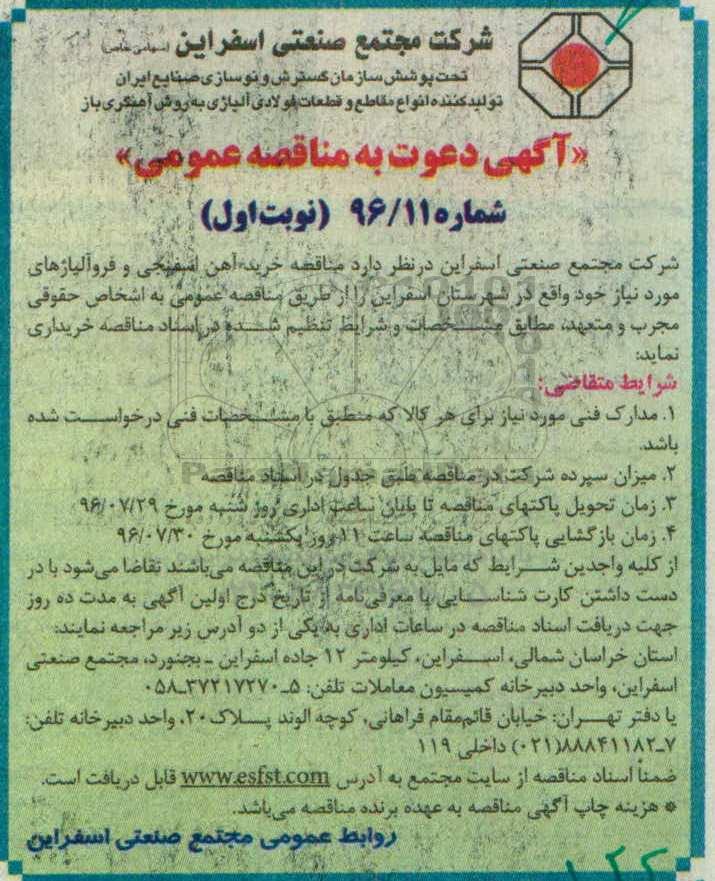 شرکت مجتمع صنعتی اسفراین (سهامی خاص)
تحت پوشش سازمان گسترش و نوسازی صنایع ایران
تولیدکننده انواع مقاطع و قطعات فولادی آلیاژی به روش آهنگری باز
«آگهی دعوت به مناقصه عمومی»
شماره ۹۶/۱۱ (نوبت اول)
شرکت مجتمع صنعتی اسفراین درنظر دارد مناقصه خرید آهن اسفنجی و فروآلیاژهای
مورد نیاز خود واقع در شهرستان اسفراین را از طریق مناقصه عمومی به اشخاص حقوقی
مجرب و متعهد، مطابق مشخصات و شرایط تنظیم شده در اسناد مناقصه خریداری
نماید:
شرایط متقاضی:
۱. مدارک فنی مورد نیاز برای هر کالا که منطبق با مشخصات فنی درخواست شده
باشد.
۲. میزان سپرده شرکت در مناقصه طبق جدول در اسناد مناقصه
۳. زمان تحویل پاکتهای مناقصه تا پایان ساعت اداری روز شنبه مورخ ۹۶/۰۷/۲۹
۴. زمان بازگشایی پاکتهای مناقصه ساعت ۱۱ روز یکشنبه مورخ ۹۶/۰۷/۳۰
از کلیه واجدین شرایط که مایل به شرکت در این مناقصه می‌باشند تقاضا می‌شود با در
دست داشتن کارت شناسایی یا معرفی‌نامه از تاریخ درج اولین آگهی به مدت ده روز
جهت دریافت اسناد مناقصه در ساعات اداری به یکی از دو آدرس زیر مراجعه نمایند:
استان خراسان شمالی، اسفراین، کیلومتر ۱۲ جاده اسفراین ـ بجنورد، مجتمع صنعتی
اسفراین، واحد دبیرخانه کمیسیون معاملات تلفن: ۵ـ۳۷۲۱۷۲۷۰ـ۰۵۸
یا دفتر تهران: خیابان قائم‌مقام فراهانی، کوچه الوند پلاک ۲۰، واحد دبیرخانه تلفن:
۷ـ۸۸۸۴۱۱۸۲(۰۲۱) داخلی ۱۱۹
ضمناً اسناد مناقصه از سایت مجتمع به آدرس www.esfst.com قابل دریافت است.
* هزینه چاپ آگهی مناقصه به عهده برنده مناقصه می‌باشد.
روابط عمومی مجتمع صنعتی اسفراین